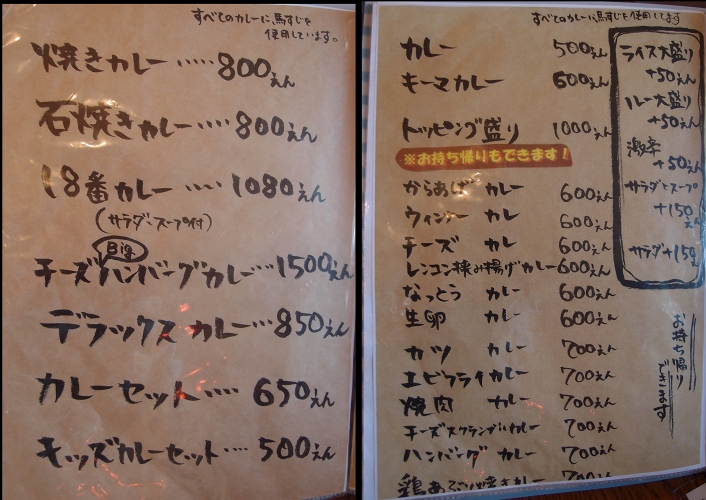 すべてのカレーに馬すじを
使用しています。
焼きカレー‥‥‥800えん
石焼きカレー‥‥800えん
18番カレー‥‥1080えん
(サラダ・スープ付)
Big
チーズハンバーグカレー‥‥1500えん
デラックスカレー‥‥850えん
カレーセット‥‥‥650えん
キッズカレーセット‥‥500えん
すべてのカレーに馬すじを使用してます
カレー 500えん
キーマカレー 600えん
トッピング盛り 1000えん
※お持ち帰りもできます!
からあげ カレー 600えん
ウィンナー カレー 600えん
チーズ カレー 600えん
レンコン挟み揚げカレー600えん
なっとう カレー 600えん
生卵 カレー 600えん
カツ カレー 700えん
エビフライカレー 700えん
焼肉 カレー 700えん
チーズスクランブルカレー 700えん
ハンバーグ カレー 700えん
鶏あぶり焼きカレー 700えん
ライス大盛り
+50えん
ルー大盛り
+50えん
激辛
+50えん
サラダとスープ
+150えん
サラダ+150えん
お持ち帰り
できます